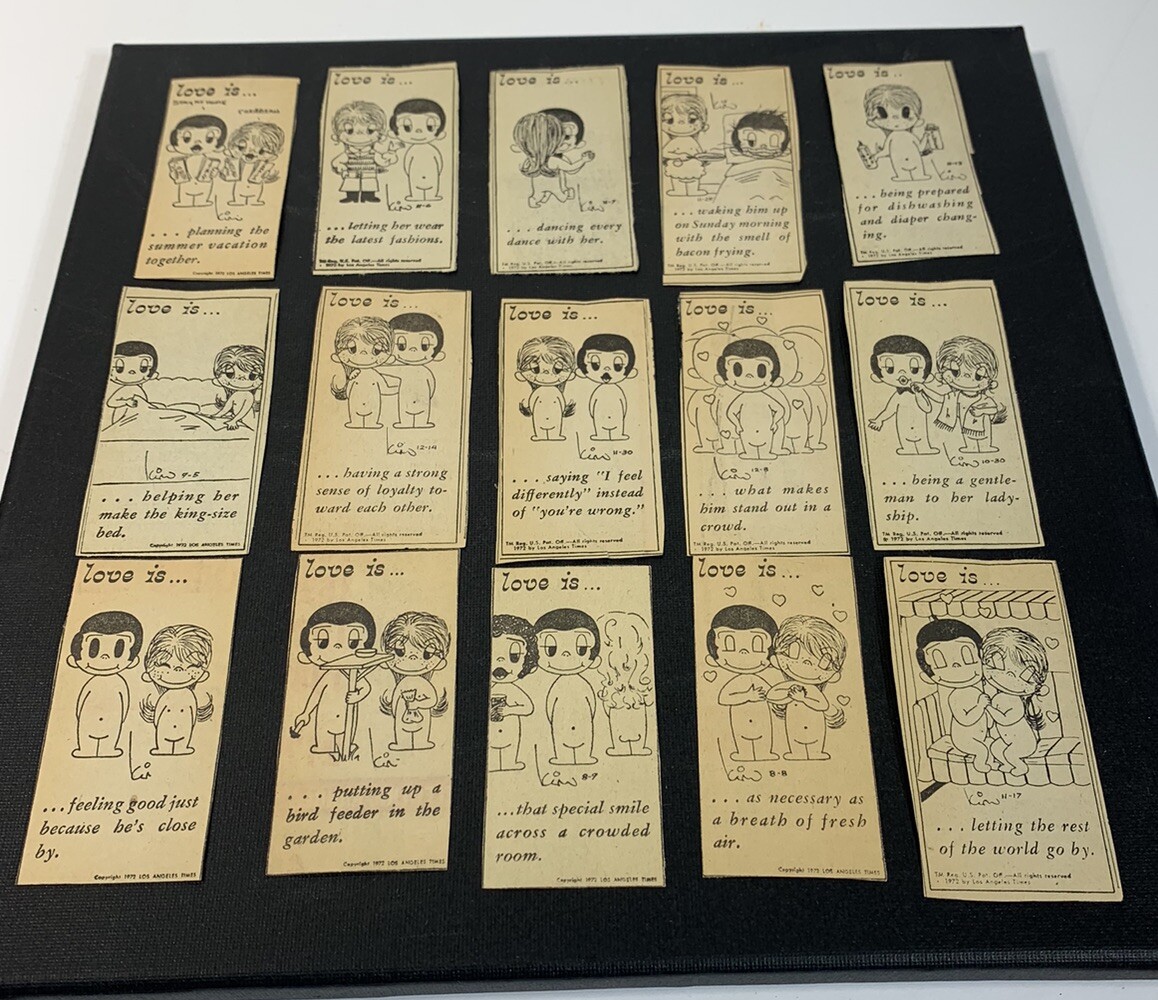 love is...
... planning the
summer vacation
together.
Copyright 1972 LOS ANGELES TIMES
love is...
...letting her wear
the latest fashions.
TM Reg. U.S. Pat. Off.—All rights reserved
1972 by Los Angeles Times
love is...
... dancing every
dance with her.
TM Reg. U.S. Pat. Off.—All rights reserved
1972 by Los Angeles Times
love is...
Kim
...waking him up
on Sunday morning
with the smell of
bacon frying.
TM Reg. U.S. Pat. Off.—All rights reserved
1972 by Los Angeles Times
love is...
Kim
...being prepared
for dishwashing
and diaper chang-
ing.
love is...
Kim 9-5
... helping her
make the king-size
bed.
Copyright 1972 LOS ANGELES TIMES
love is...
Kim 12-14
...having a strong
sense of loyalty to-
ward each other.
TM Reg. U.S. Pat. Off.—All rights reserved
1972 by Los Angeles Times
love is...
Kim 11-30
... saying "I feel
differently" instead
of "you're wrong."
TM Reg. U.S. Pat. Off.—All rights reserved
1972 by Los Angeles Times
love is...
Kim 12-8
... what makes
him stand out in a
crowd.
TM Reg. U.S. Pat. Off.—All rights reserved
1972 by Los Angeles Times
love is...
Kim 10-30
...being a gentle-
man to her lady-
ship.
TM Reg. U.S. Pat. Off.—All rights reserved
© 1972 by Los Angeles Times
love is...
Kim
...feeling good just
because he's close
by.
Copyright 1972 LOS ANGELES TIMES
love is...
Kim
... putting up a
bird feeder in the
garden.
Copyright 1972 LOS ANGELES TIMES
love is...
Kim 8-9
...that special smile
across a crowded
room.
Copyright 1972 LOS ANGELES TIMES
love is...
Kim 8-8
... as necessary as
a breath of fresh
air.
Copyright 1972 LOS ANGELES TIMES
love is...
Kim 11-17
... letting the rest
of the world go by.
TM Reg. U.S. Pat. Off.—All rights reserved
1972 by Los Angeles Times